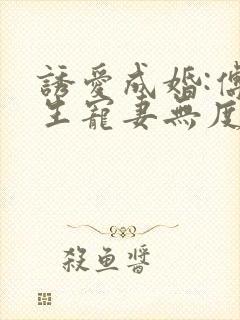 誘愛成婚:傅
生寵妻無度
殺魚醬